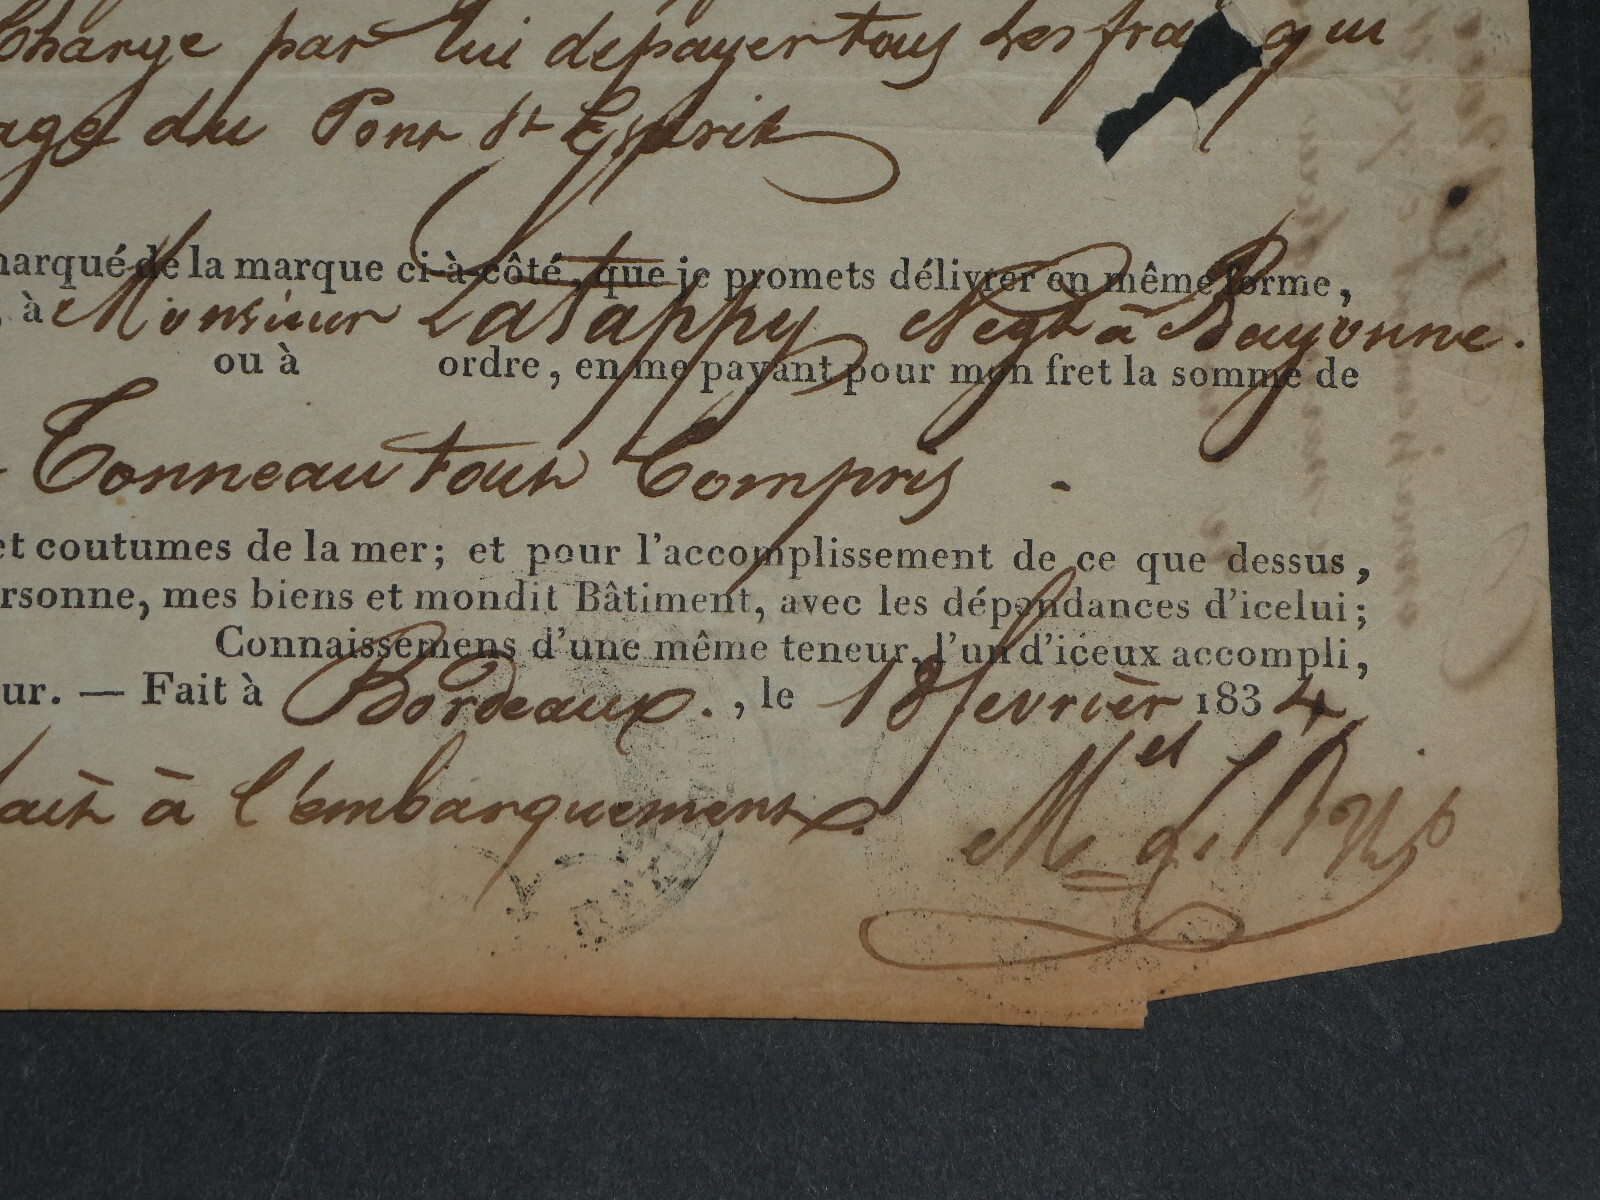 Charge par lui de payer tous les frais qui
age du Pont St Esprit
marqué de la marque ci-à-côté, que je promets délivrer en même forme,
, à Monsieur Latappy Negt à Bayonne.
ou à ordre, en me payant pour mon fret la somme de
Tonneau tout Compris -
et coutumes de la mer; et pour l'accomplissement de ce que dessus,
rsonne, mes biens et mondit Bâtiment, avec les dépendances d'icelui;
Connaissemens d'une même teneur, l'un d'iceux accompli,
ur. — Fait à Bordeaux., le 18 fevrièr 1834
fait à l'embarquement.